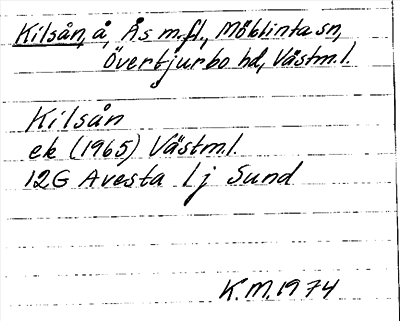 Kilsån, å, Ås m.fl., Möklinta sn,
Övertjurbo hd, Västm.l.
Kilsån
ek (1965) Västm.l.
12G Avesta 1j Sund
K.M. 1974